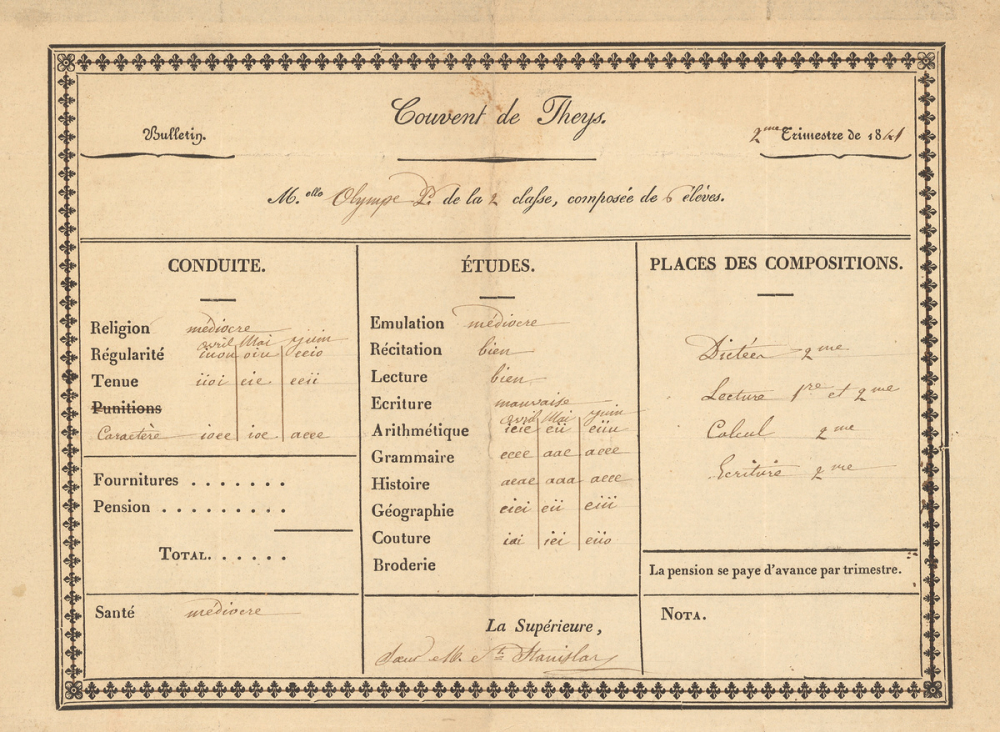 Couvent de Theys.
Bulletin.
2me Trimestre de 1841
M.elle Olympe P. de la 2 classe, composée de 6 élèves.
CONDUITE.
Religion médiocre
avril Mai juin
Régularité iuou oiu eeio
Tenue iioi eie eeii
Punitions
Caractère ioee ioe aeee
Fournitures . . . . . . .
Pension . . . . . . . . .
TOTAL. . . . . .
Santé médiocre
ÉTUDES.
Emulation médiocre
Récitation bien
Lecture bien
Ecriture mauvaise
avril Mai juin
Arithmétique ieie eii eiiu
Grammaire eeee aae aeee
Histoire aeae aaa aeee
Géographie eiei eii eiii
Couture iai iei eiio
Broderie
La Supérieure,
Sœur M. St Stanislas
PLACES DES COMPOSITIONS.
Dictée 2me
Lecture 1re et 2me
Calcul 2me
Ecriture 2me
La pension se paye d'avance par trimestre.
NOTA.